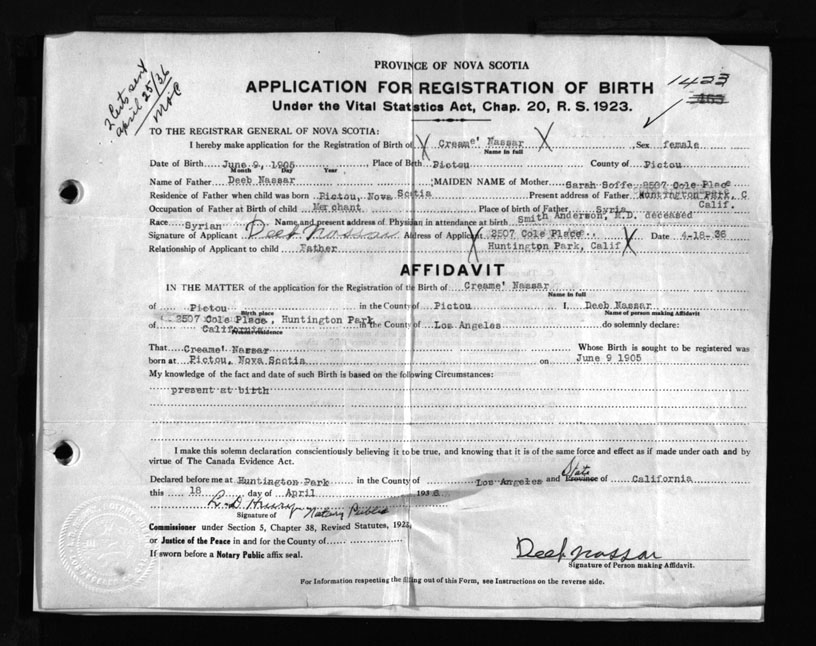 PROVINCE OF NOVA SCOTIA
APPLICATION FOR REGISTRATION OF BIRTH
1423
Under the Vital Statistics Act, Chap. 20, R. S. 1923.
2 Certs sent
april 25/36
TO THE REGISTRAR GENERAL OF NOVA SCOTIA:
I hereby make application for the Registration of Birth of X Creame' Nassar X Sex female
Name in full
Date of Birth June 9, 1905 Place of Birth Pictou County of Pictou
Month Day Year
Name of Father Deeb Nassar MAIDEN NAME of Mother Sarah Soffe 2507 Cole Place
Residence of Father when child was born Pictou, Nova Scotia Present address of Father Huntington Park, C
Calif.
Occupation of Father at Birth of child Merchant Place of birth of Father Syria
Race Syrian Name and present address of Physician in attendance at birth Smith Anderson, M.D. deceased
Signature of Applicant Deeb Nassar Address of Applicant X 2507 Cole Place Date 4-18-36
Relationship of Applicant to child Father Huntington Park, Calif X
AFFIDAVIT
IN THE MATTER of the application for the Registration of the Birth of Creame' Nassar
Name in full
of Pictou in the County of Pictou I, Deeb Nassar
Birth place Name of person making Affidavit
of 2507 Cole Place, Huntington Park in the County of Los Angeles do solemnly declare:
California
Present residence
That Creame' Nassar Whose Birth is sought to be registered was
born at Pictou, Nova Scotia on June 9 1905
My knowledge of the fact and date of such Birth is based on the following Circumstances:
present at birth
I make this solemn declaration conscientiously believing it to be true, and knowing that it is of the same force and effect as if made under oath and by
virtue of The Canada Evidence Act.
State
Declared before me at Huntington Park in the County of Los Angeles and Province of California
this 18 day of April 1936
Notary Public
Signature of
Commissioner under Section 5, Chapter 38, Revised Statutes, 1923,
or Justice of the Peace in and for the County of
If sworn before a Notary Public affix seal.
Deeb Nassar
Signature of Person making Affidavit.
For Information respecting the filling out of this Form, see Instructions on the reverse side.